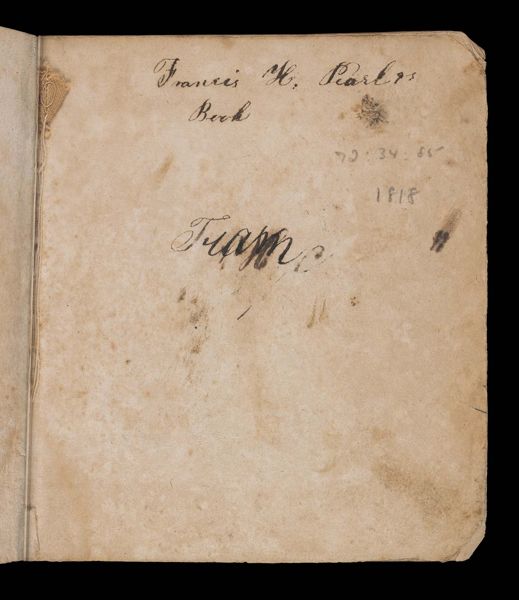 Francis H. Pearl's
Book
72.34.85
1818
Fran